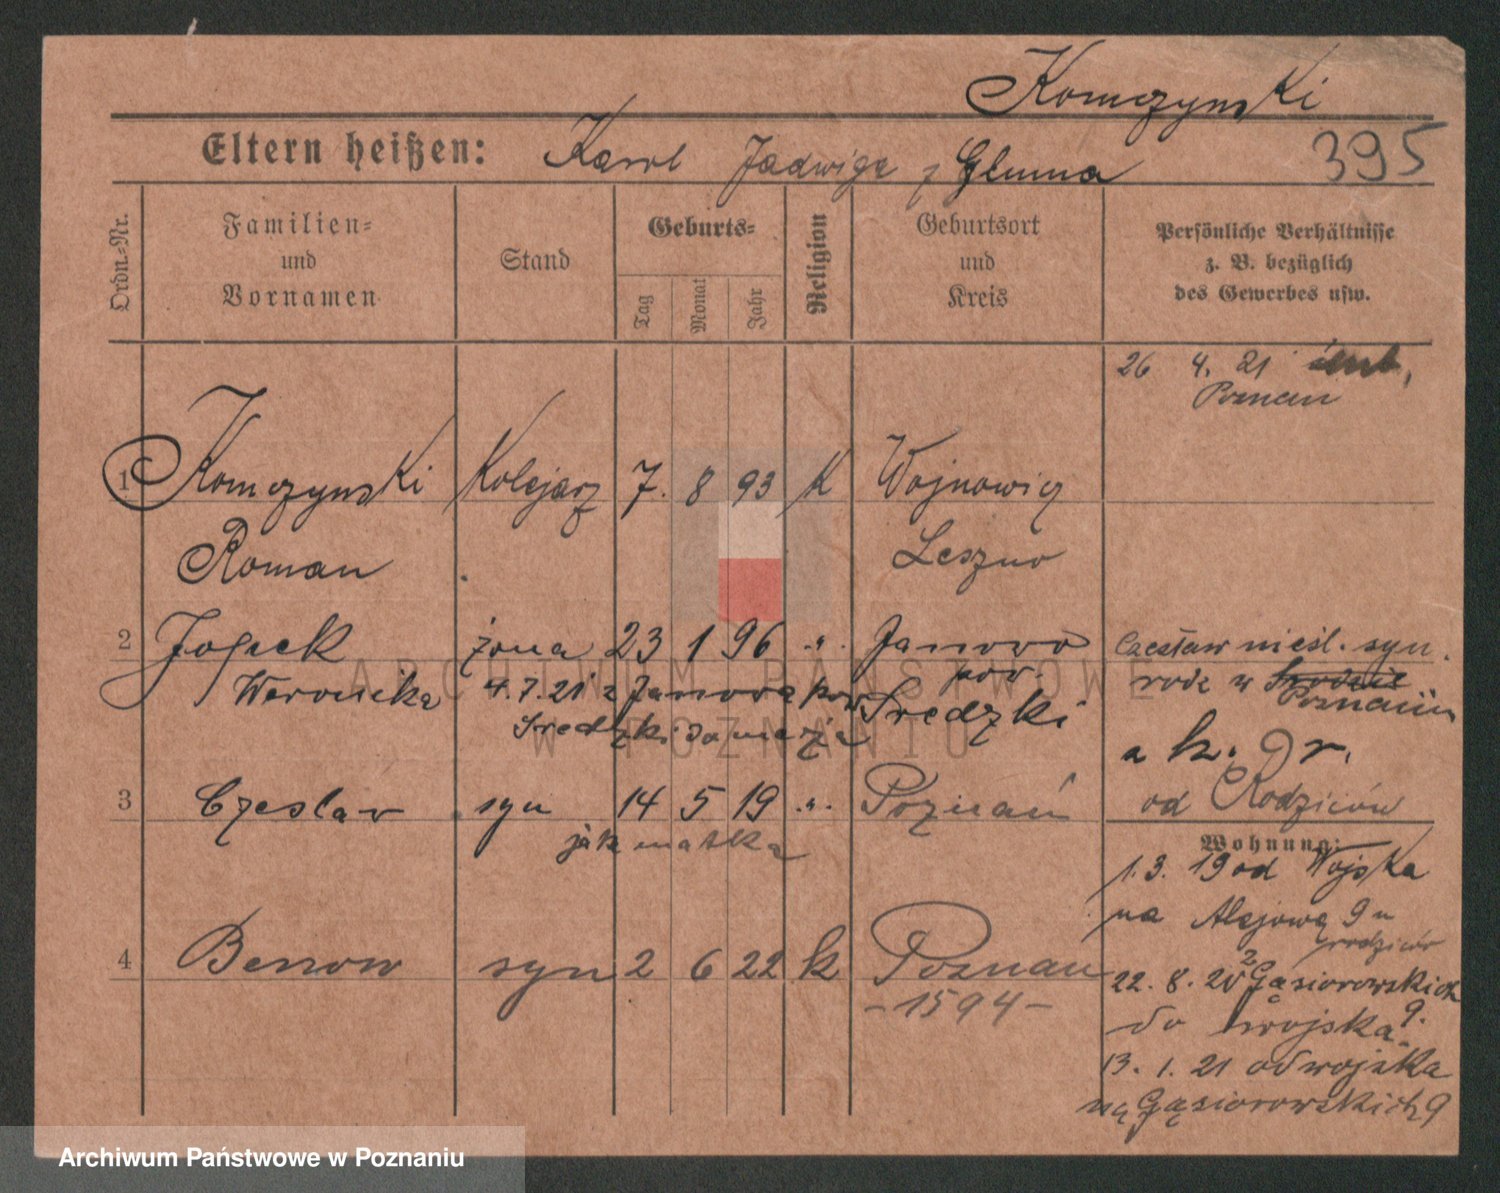 Komczynski
Eltern heißen: Karol Jadwiga z Gluma
395
Ordn.-Nr.
Familien-
und
Vornamen
Stand
Geburts-
Tag
Monat
Jahr
Religion
Geburtsort
und
Kreis
Persönliche Verhältnisse
z. B. bezüglich
des Gewerbes usw.
26 4. 21
Poznan
1 Komczynski Kolejarz 7. 8 93 K Wojnowicz
Roman Leszno
2 Jossek żona 23 1 96 -"- Janowo
Weronika pow.
4.7.21 z Janowa pow Sredzki
Sredzki do męża
Czesław nieśl. syn.
rodz w Poznaniu
a k. gr.
od Rodziców
3 Czeslav syn 14 5 19 -"- Poznań
jak matka
Wohnung:
1. 3. 19 od Wojska
na Alejową 9 u
rodziców
4 Benon syn 2 6 22 k Poznan
-1594-
22. 8. 20 z Gąsiorowskich
do wojska 9.
13. 1. 21 od wojska
na Gąsiorowskich 9
ARCHIWUM PAŃSTWOWE
W POZNANIU
Archiwum Państwowe w Poznaniu